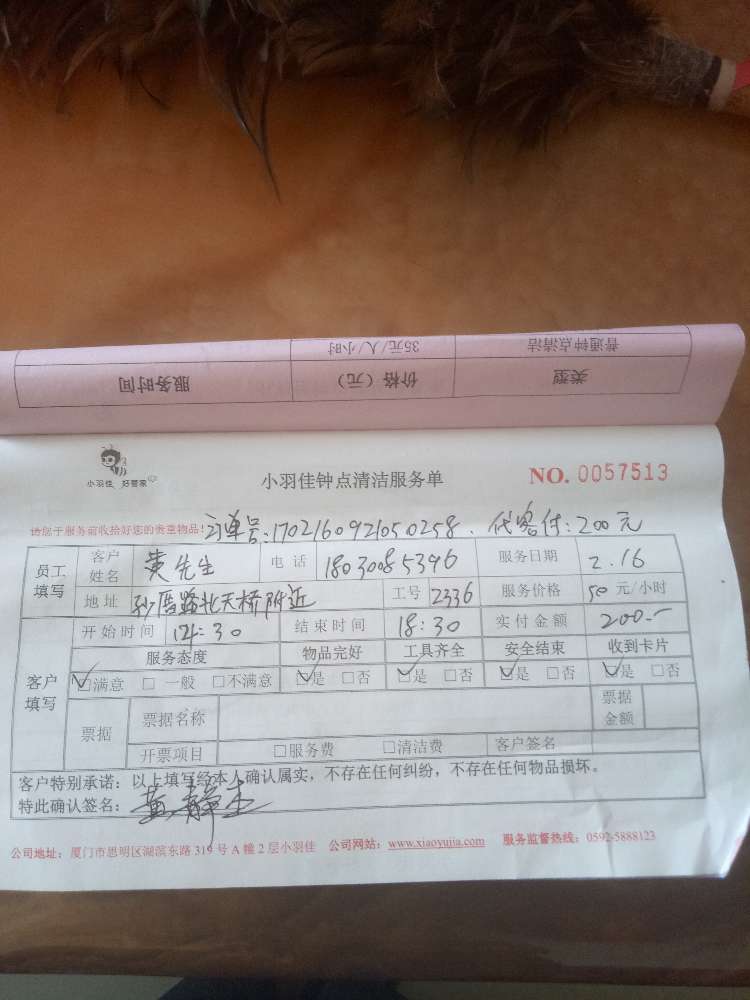 普通钟点清洁 35元/人/小时
类型 价格（元） 服务时间
小羽佳 好管家
小羽佳钟点清洁服务单 NO. 0057513
请您于服务前收拾好您的贵重物品！订单号:1702160921050258. 代客付:200元
员工填写 客户姓名 黄先生 电话 18030085396 服务日期 2.16
地址 厦路北天桥附近 工号 2336 服务价格 50 元/小时
客户填写 开始时间 14:30 结束时间 18:30 实付金额 200.-
服务态度 物品完好 工具齐全 安全结束 收到卡片
☑满意 □一般 □不满意 ☑是 □否 ☑是 □否 ☑是 □否 ☑是 □否
票据 票据名称 票据金额
开票项目 □服务费 □清洁费 客户签名
客户特别承诺：以上填写经本人确认属实，不存在任何纠纷，不存在任何物品损坏。
特此确认签名：黄静
公司地址：厦门市思明区湖滨东路319号A幢2层小羽佳 公司网站：www.xiaoyujia.com 服务监督热线：0592-5888123